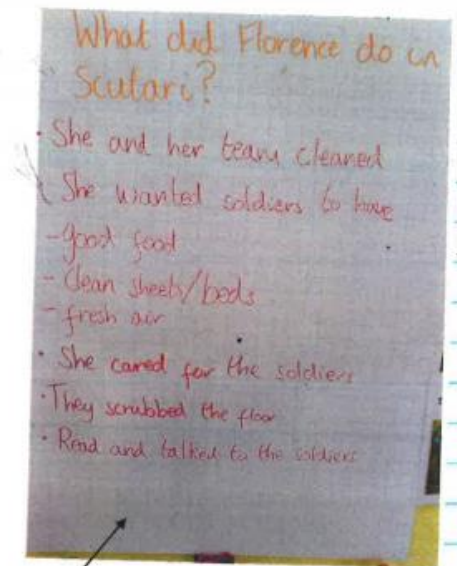 What did Florence do in
Scutari?
• She and her team cleaned
She wanted soldiers to have
- good food
- Clean sheets/beds
- fresh air
• She cared for the soldiers
• They scrubbed the floor
• Read and talked to the soldiers